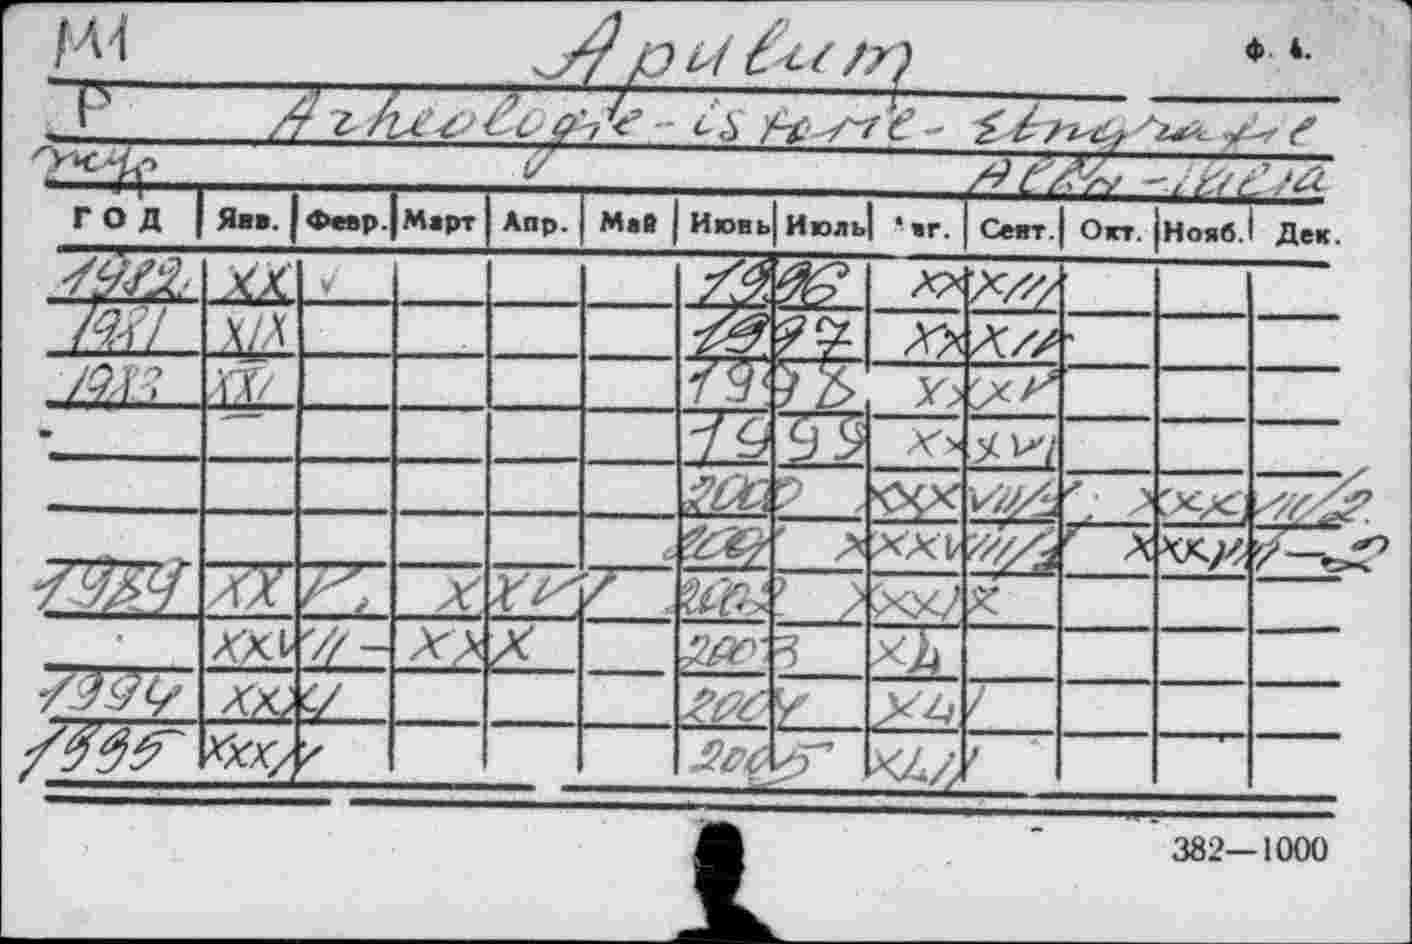 Apulum Ф. 4.
P Arheologie - istorie -
Alba - Iulia
ГОД Янв. Февр. Март Апр. Май Июнь Июль Авг. Сент. Окт. Нояб. Дек.
1982 XX 1996 XXXIII
1981 XIX 1997 XXXII
1983 XXI 1998 XXXV
1999 XXXVI
2000 XXXVII/1 XXXVII/2
2001 XXXVIII/1 XXXVIII/2
1989 XXV, XXVI 2002 XXXIX
XXVII - XXX 2003 XL
1994 XXXI 2004 XLI
1995 XXXII 2005 XLII
382—1000